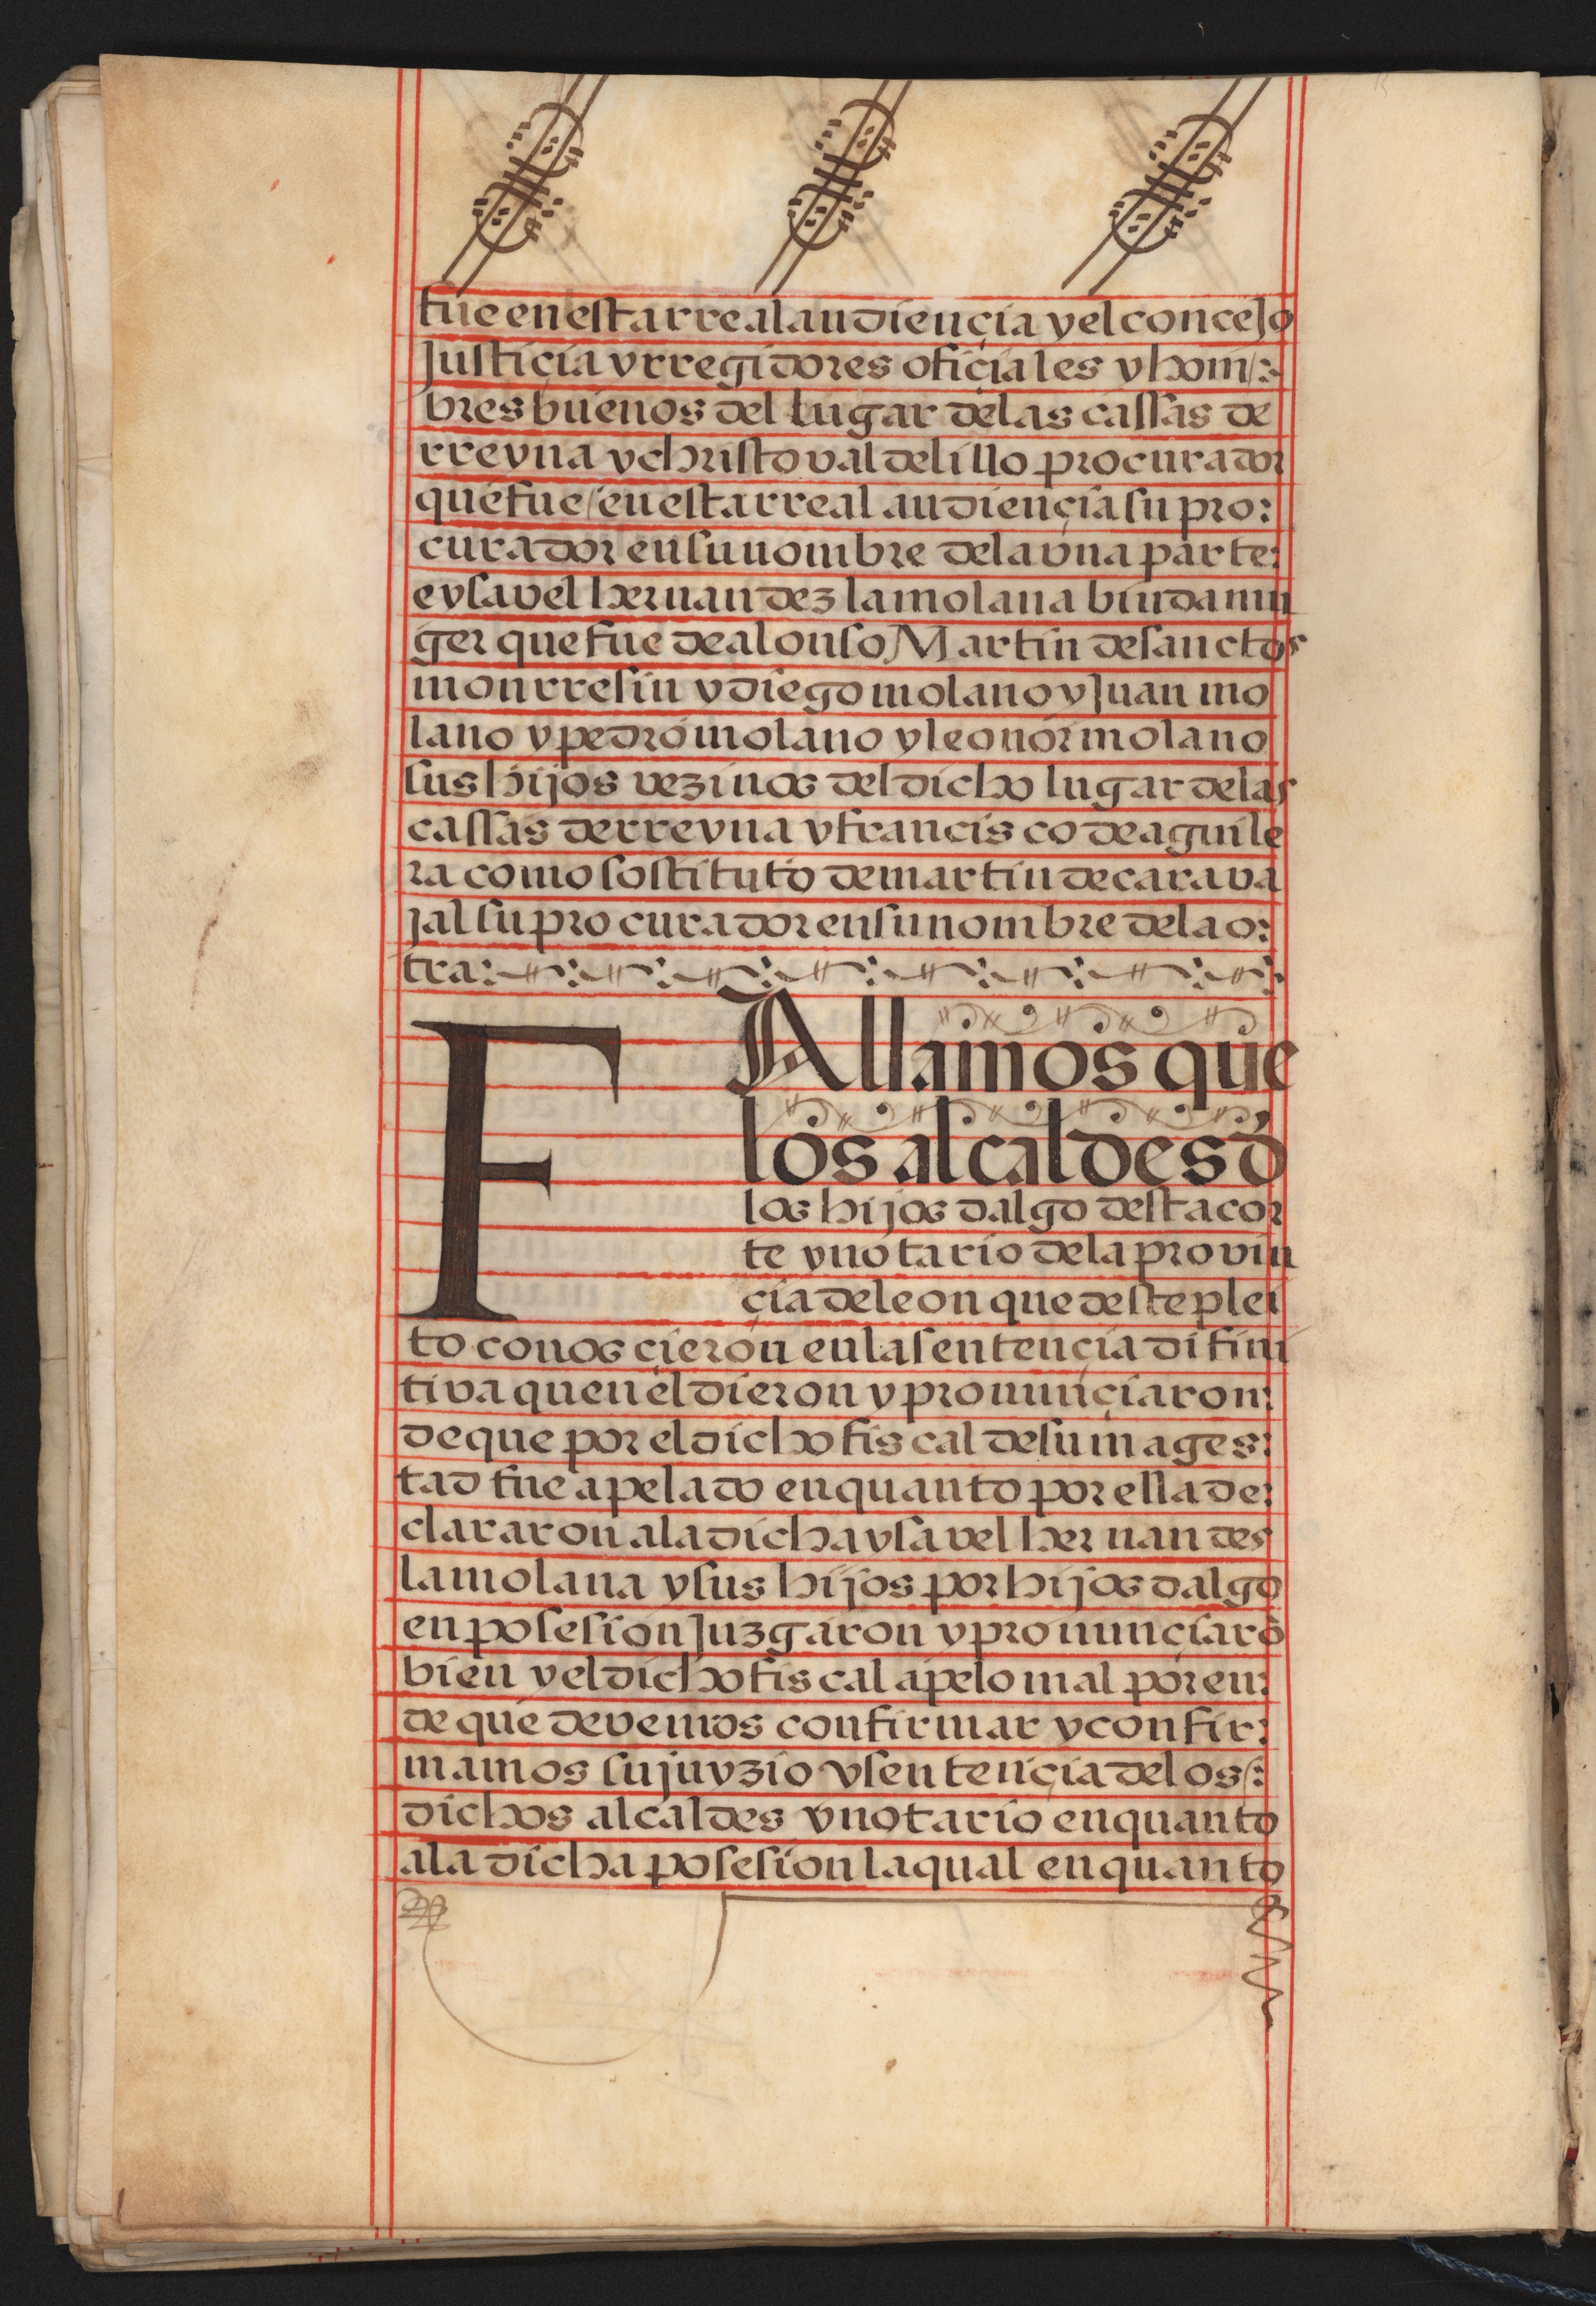 fue en esta rreal audiençia y el concejo
Justiçia y rregidores ofiçiales y hom/:
bres buenos del lugar de las cassas de
rreyna y christoval de lillo procurador
que fue / en esta rreal audiençia su pro:
curador en su nombre de la vna parte:
e ysavel hernandez la molana biuda mu
ger que fue de alonso Martin de sanctos
monrresin y diego molano y Juan mo
lano y pedro molano y leonor molano
sus hijos vezinos del dicho lugar de las
cassas de rreyna y francisco de aguile
ra como sostituto de martin de carava
jal su procurador en su nombre de la o:
tra:
FAllamos que
los alcaldes d̓
los hijos dalgo desta cor
te y notario de la provin
çia de leon que deste plei
to conosçieron en la sentençia difini
tiva quen el dieron y pronunçiaron:
de que por el dicho fiscal de su mages:
tad fue apelado en quanto por ella de:
clararon a la dicha ysavel hernandes
la molana y sus hijos por hijos dalgo
en posesion Juzgaron y pronunçiarō
bien y el dicho fiscal apelo mal por en:
de que devemos confirmar y confir:
mamos su juyzio y sentençia de los/:
dichos alcaldes y notario en quanto
a la dicha posesion la qual en quanto